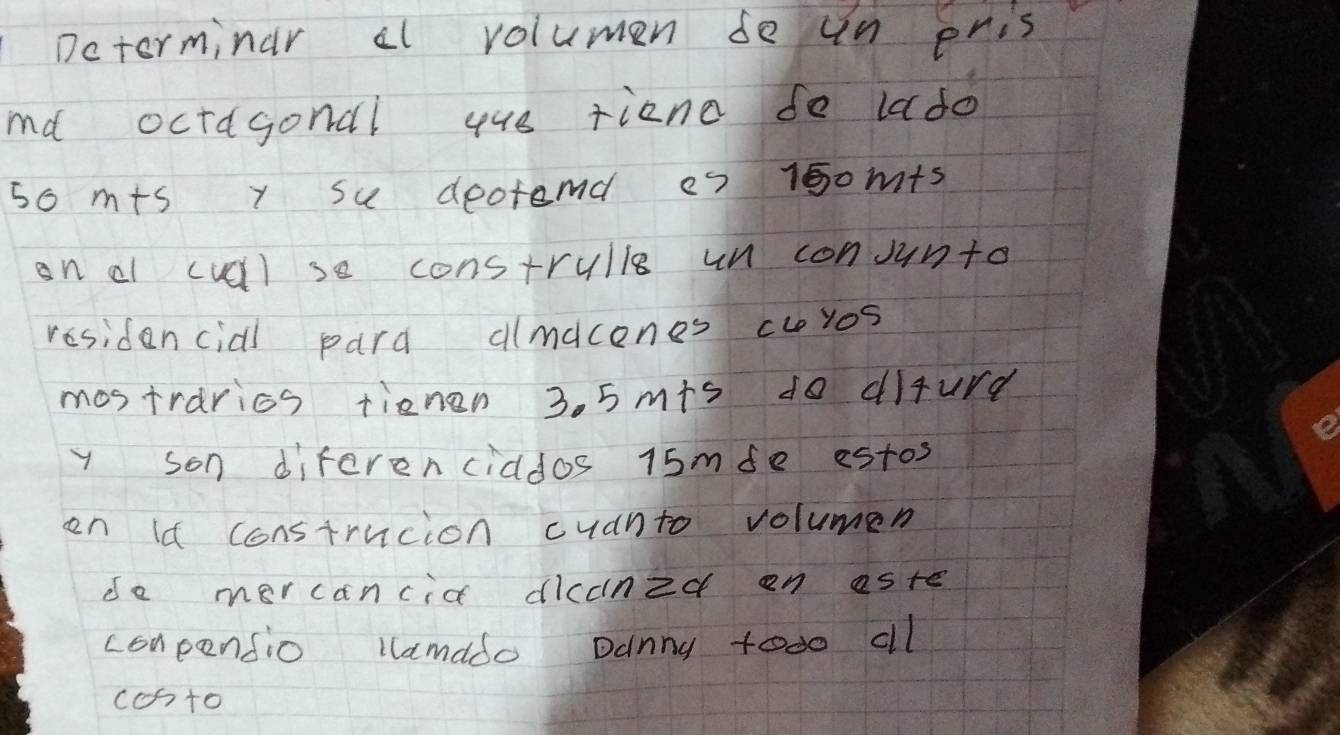 Determinar el volumen de un pris
ma octagonal que tiene de lado
50 mts y su apotema es 150 mts
en el cual se construlle un conjunto
residencial para almacenes cuyos
mostrarios tienen 3.5 mts de altura
y son diferenciados 15m de estos
en la construcion cuanto volumen
de mercancia alcanza en este
conpendio llamado Danny todo al
costo